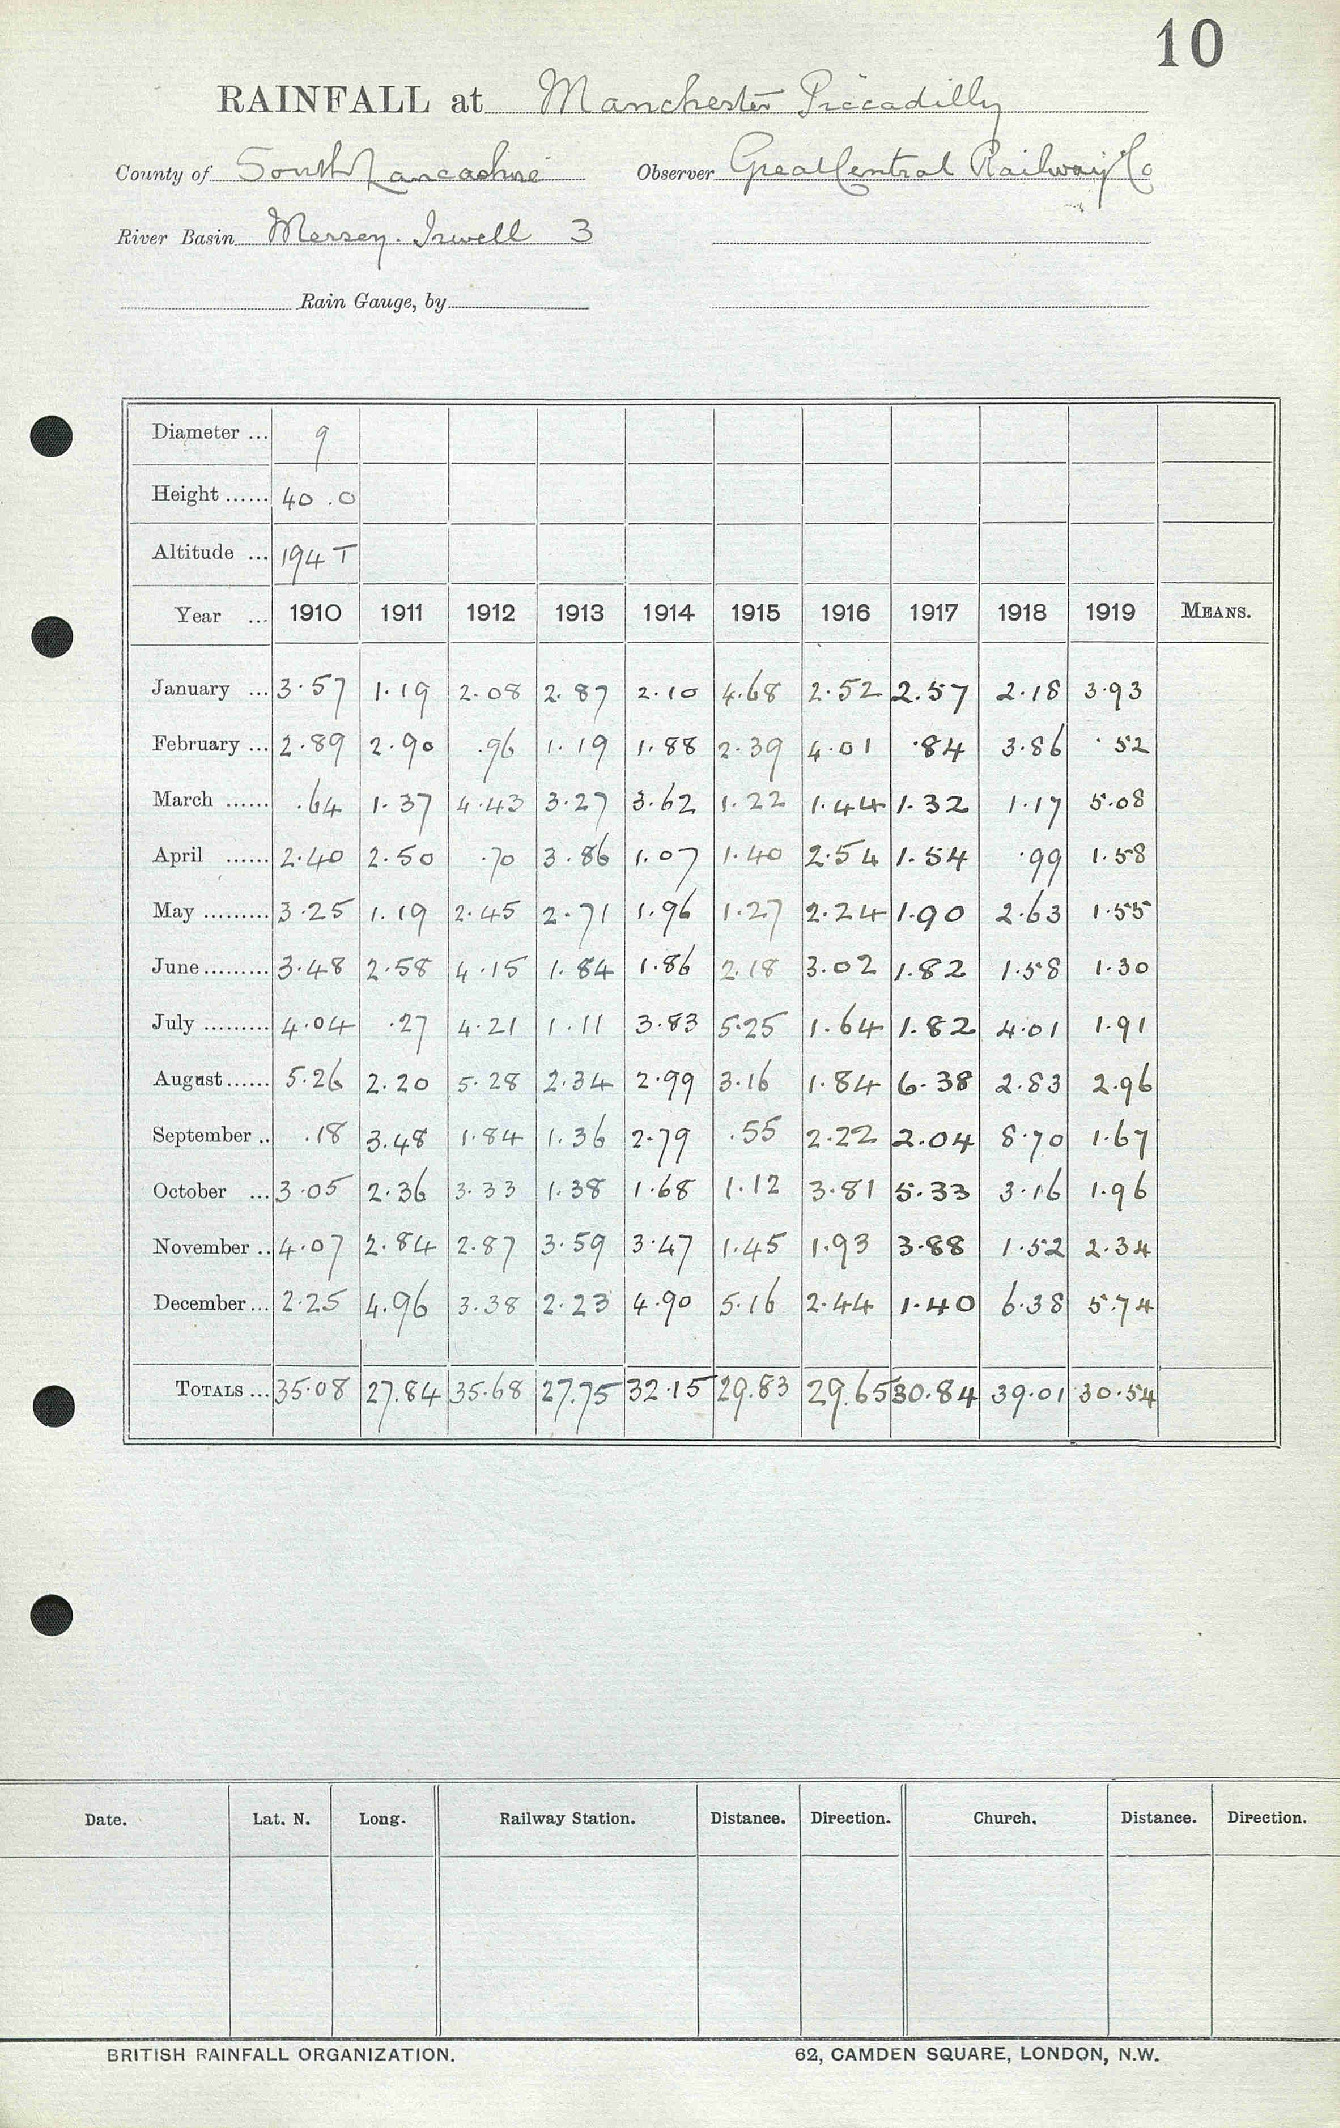 10
RAINFALL at Manchester Piccadilly
County of South Lancashire Observer Great Central Railway Co
River Basin Mersey. Irwell 3
Rain Gauge, by
Diameter ... 9
Height ...... 40.0
Altitude ... 194 T
Year ... 1910 1911 1912 1913 1914 1915 1916 1917 1918 1919 MEANS.
January ... 3.57 1.19 2.08 2.87 2.10 4.68 2.52 2.57 2.18 3.93
February ... 2.89 2.90 .96 1.19 1.88 2.39 4.01 .84 3.86 .52
March ...... .64 1.37 4.43 3.27 3.62 1.22 1.44 1.32 1.17 5.08
April ...... 2.40 2.50 .70 3.86 1.07 1.40 2.54 1.54 .99 1.58
May ......... 3.25 1.19 2.45 2.71 1.96 1.27 2.24 1.90 2.63 1.55
June ......... 3.48 2.58 4.15 1.84 1.86 2.18 3.02 1.82 1.58 1.30
July ......... 4.04 .27 4.21 1.11 3.83 5.25 1.64 1.82 4.01 1.91
August ...... 5.26 2.20 5.28 2.34 2.99 3.16 1.84 6.38 2.83 2.96
September .. .18 3.48 1.84 1.36 2.79 .55 2.22 2.04 8.70 1.67
October ... 3.05 2.36 3.33 1.38 1.68 1.12 3.81 5.33 3.16 1.96
November .. 4.07 2.84 2.87 3.59 3.47 1.45 1.93 3.88 1.52 2.34
December ... 2.25 4.96 3.38 2.23 4.90 5.16 2.44 1.40 6.38 5.74
TOTALS ... 35.08 27.84 35.68 27.75 32.15 29.83 29.65 30.84 39.01 30.54
Date. Lat. N. Long. Railway Station. Distance. Direction. Church. Distance. Direction.
BRITISH RAINFALL ORGANIZATION. 62, CAMDEN SQUARE, LONDON, N.W.